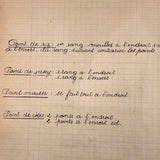 Point de riz: 1er rang mailles à l'endroit et
à l'envers. 2è rang suivant contrarier les points
Point de jersey: 1 rang à l'endroit
1 rang à l'envers
Point mousse: se fait tout à l'endroit
Point de côtes: 2 points à l'endroit
2 points à l'envers